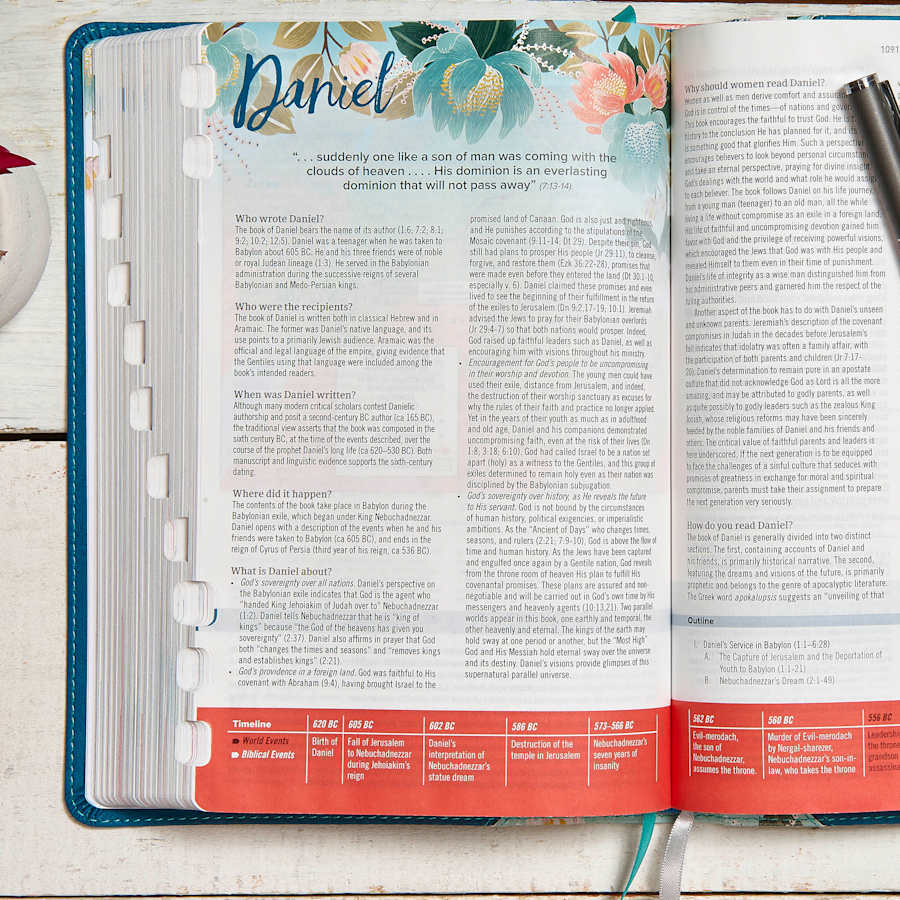 Daniel
“. . . suddenly one like a son of man was coming with the
clouds of heaven . . . . His dominion is an everlasting
dominion that will not pass away” (7:13-14).
Who wrote Daniel?
The book of Daniel bears the name of its author (1:6; 7:2; 8:1;
9:2; 10:2; 12:5). Daniel was a teenager when he was taken to
Babylon about 605 BC. He and his three friends were of noble
or royal Judean lineage (1:3). He served in the Babylonian
administration during the successive reigns of several
Babylonian and Medo-Persian kings.
Who were the recipients?
The book of Daniel is written both in classical Hebrew and in
Aramaic. The former was Daniel's native language, and its
use points to a primarily Jewish audience. Aramaic was the
official and legal language of the empire, giving evidence that
the Gentiles using that language were included among the
book's intended readers.
When was Daniel written?
Although many modern critical scholars contest Danielic
authorship and posit a second-century BC author (ca 165 BC),
the traditional view asserts that the book was composed in the
sixth century BC, at the time of the events described, over the
course of the prophet Daniel's long life (ca 620–530 BC). Both
manuscript and linguistic evidence supports the sixth-century
dating.
Where did it happen?
The contents of the book take place in Babylon during the
Babylonian exile, which began under King Nebuchadnezzar.
Daniel opens with a description of the events when he and his
friends were taken to Babylon (ca 605 BC), and ends in the
reign of Cyrus of Persia (third year of his reign, ca 536 BC).
What is Daniel about?
• God's sovereignty over all nations. Daniel's perspective on
the Babylonian exile indicates that God is the agent who
“handed King Jehoiakim of Judah over to” Nebuchadnezzar
(1:2). Daniel tells Nebuchadnezzar that he is “king of
kings” because “the God of the heavens has given you
sovereignty” (2:37). Daniel also affirms in prayer that God
both “changes the times and seasons” and “removes kings
and establishes kings” (2:21).
• God's providence in a foreign land. God was faithful to His
covenant with Abraham (9:4), having brought Israel to the
promised land of Canaan. God is also just and righteous
and He punishes according to the stipulations of the
Mosaic covenant (9:11-14; Dt 29). Despite their sin, God
still had plans to prosper His people (Jr 29:11), to cleanse,
forgive, and restore them (Ezk 36:22-28), promises that
were made even before they entered the land (Dt 30:1-10,
especially v. 6). Daniel claimed these promises and even
lived to see the beginning of their fulfillment in the return
of the exiles to Jerusalem (Dn 9:2,17-19; 10:1). Jeremiah
advised the Jews to pray for their Babylonian overlords
(Jr 29:4-7) so that both nations would prosper. Indeed,
God raised up faithful leaders such as Daniel, as well as
encouraging him with visions throughout his ministry.
• Encouragement for God's people to be uncompromising
in their worship and devotion. The young men could have
used their exile, distance from Jerusalem, and indeed,
the destruction of their worship sanctuary as excuses for
why the rules of their faith and practice no longer applied.
Yet in the years of their youth as much as in adulthood
and old age, Daniel and his companions demonstrated
uncompromising faith, even at the risk of their lives (Dn
1:8; 3:18; 6:10). God had called Israel to be a nation set
apart (holy) as a witness to the Gentiles, and this group of
exiles determined to remain holy even as their nation was
disciplined by the Babylonian subjugation.
• God's sovereignty over history, as He reveals the future
to His servant. God is not bound by the circumstances
of human history, political exigencies, or imperialistic
ambitions. As the “Ancient of Days” who changes times,
seasons, and rulers (2:21; 7:9-10), God is above the flow of
time and human history. As the Jews have been captured
and engulfed once again by a Gentile nation, God reveals
from the throne room of heaven His plan to fulfill His
covenantal promises. These plans are assured and non-
negotiable and will be carried out in God's own time by His
messengers and heavenly agents (10:13,21). Two parallel
worlds appear in this book, one earthly and temporal, the
other heavenly and eternal. The kings of the earth may
hold sway at one period or another, but the “Most High”
God and His Messiah hold eternal sway over the universe
and its destiny. Daniel's visions provide glimpses of this
supernatural parallel universe.
Timeline
World Events
Biblical Events
620 BC
Birth of
Daniel
605 BC
Fall of Jerusalem
to Nebuchadnezzar
during Jehoiakim's
reign
602 BC
Daniel's
interpretation of
Nebuchadnezzar's
statue dream
586 BC
Destruction of the
temple in Jerusalem
573–566 BC
Nebuchadnezzar's
seven years of
insanity
1091
Why should women read Daniel?
Women as well as men derive comfort and
God is in control of the times—of nations and
This book encourages the faithful to trust God. He is
history to the conclusion He has planned for it, and
is something good that glorifies Him. Such a perspective
encourages believers to look beyond personal
and take an eternal perspective, praying for divine insight
God's dealings with the world and what role he would assign
to each believer. The book follows Daniel on his life journey
from a young man (teenager) to an old man, all the while
living a life without compromise as an exile in a foreign land.
His life of faithful and uncompromising devotion gained him
favor with God and the privilege of receiving powerful visions,
which encouraged the Jews that God was with His people and
revealed Himself to them even in their time of punishment.
Daniel's life of integrity as a wise man distinguished him from
his administrative peers and garnered him the respect of the
ruling authorities.
Another aspect of the book has to do with Daniel's unseen
and unknown parents. Jeremiah's description of the covenant
compromises in Judah in the decades before Jerusalem's
fall indicates that idolatry was often a family affair, with
the participation of both parents and children (Jr 7:17-
20). Daniel's determination to remain pure in an apostate
culture that did not acknowledge God as Lord is all the more
amazing, and may be attributed to godly parents, as well
as quite possibly to godly leaders such as the zealous King
Josiah, whose religious reforms may have been sincerely
heeded by the noble families of Daniel and his friends and
others. The critical value of faithful parents and leaders is
here underscored. If the next generation is to be equipped
to face the challenges of a sinful culture that seduces with
promises of greatness in exchange for moral and spiritual
compromise, parents must take their assignment to prepare
the next generation very seriously.
How do you read Daniel?
The book of Daniel is generally divided into two distinct
sections. The first, containing accounts of Daniel and
his friends, is primarily historical narrative. The second,
featuring the dreams and visions of the future, is primarily
prophetic and belongs to the genre of apocalyptic literature.
The Greek word apokalupsis suggests an “unveiling of that
Outline
I. Daniel's Service in Babylon (1:1–6:28)
A. The Capture of Jerusalem and the Deportation of
Youth to Babylon (1:1-21)
B. Nebuchadnezzar's Dream (2:1-49)
562 BC
Evil-merodach,
the son of
Nebuchadnezzar,
assumes the throne.
560 BC
Murder of Evil-merodach
by Nergal-sharezer,
Nebuchadnezzar's son-in-
law, who takes the throne
556 BC
the throne
grandson